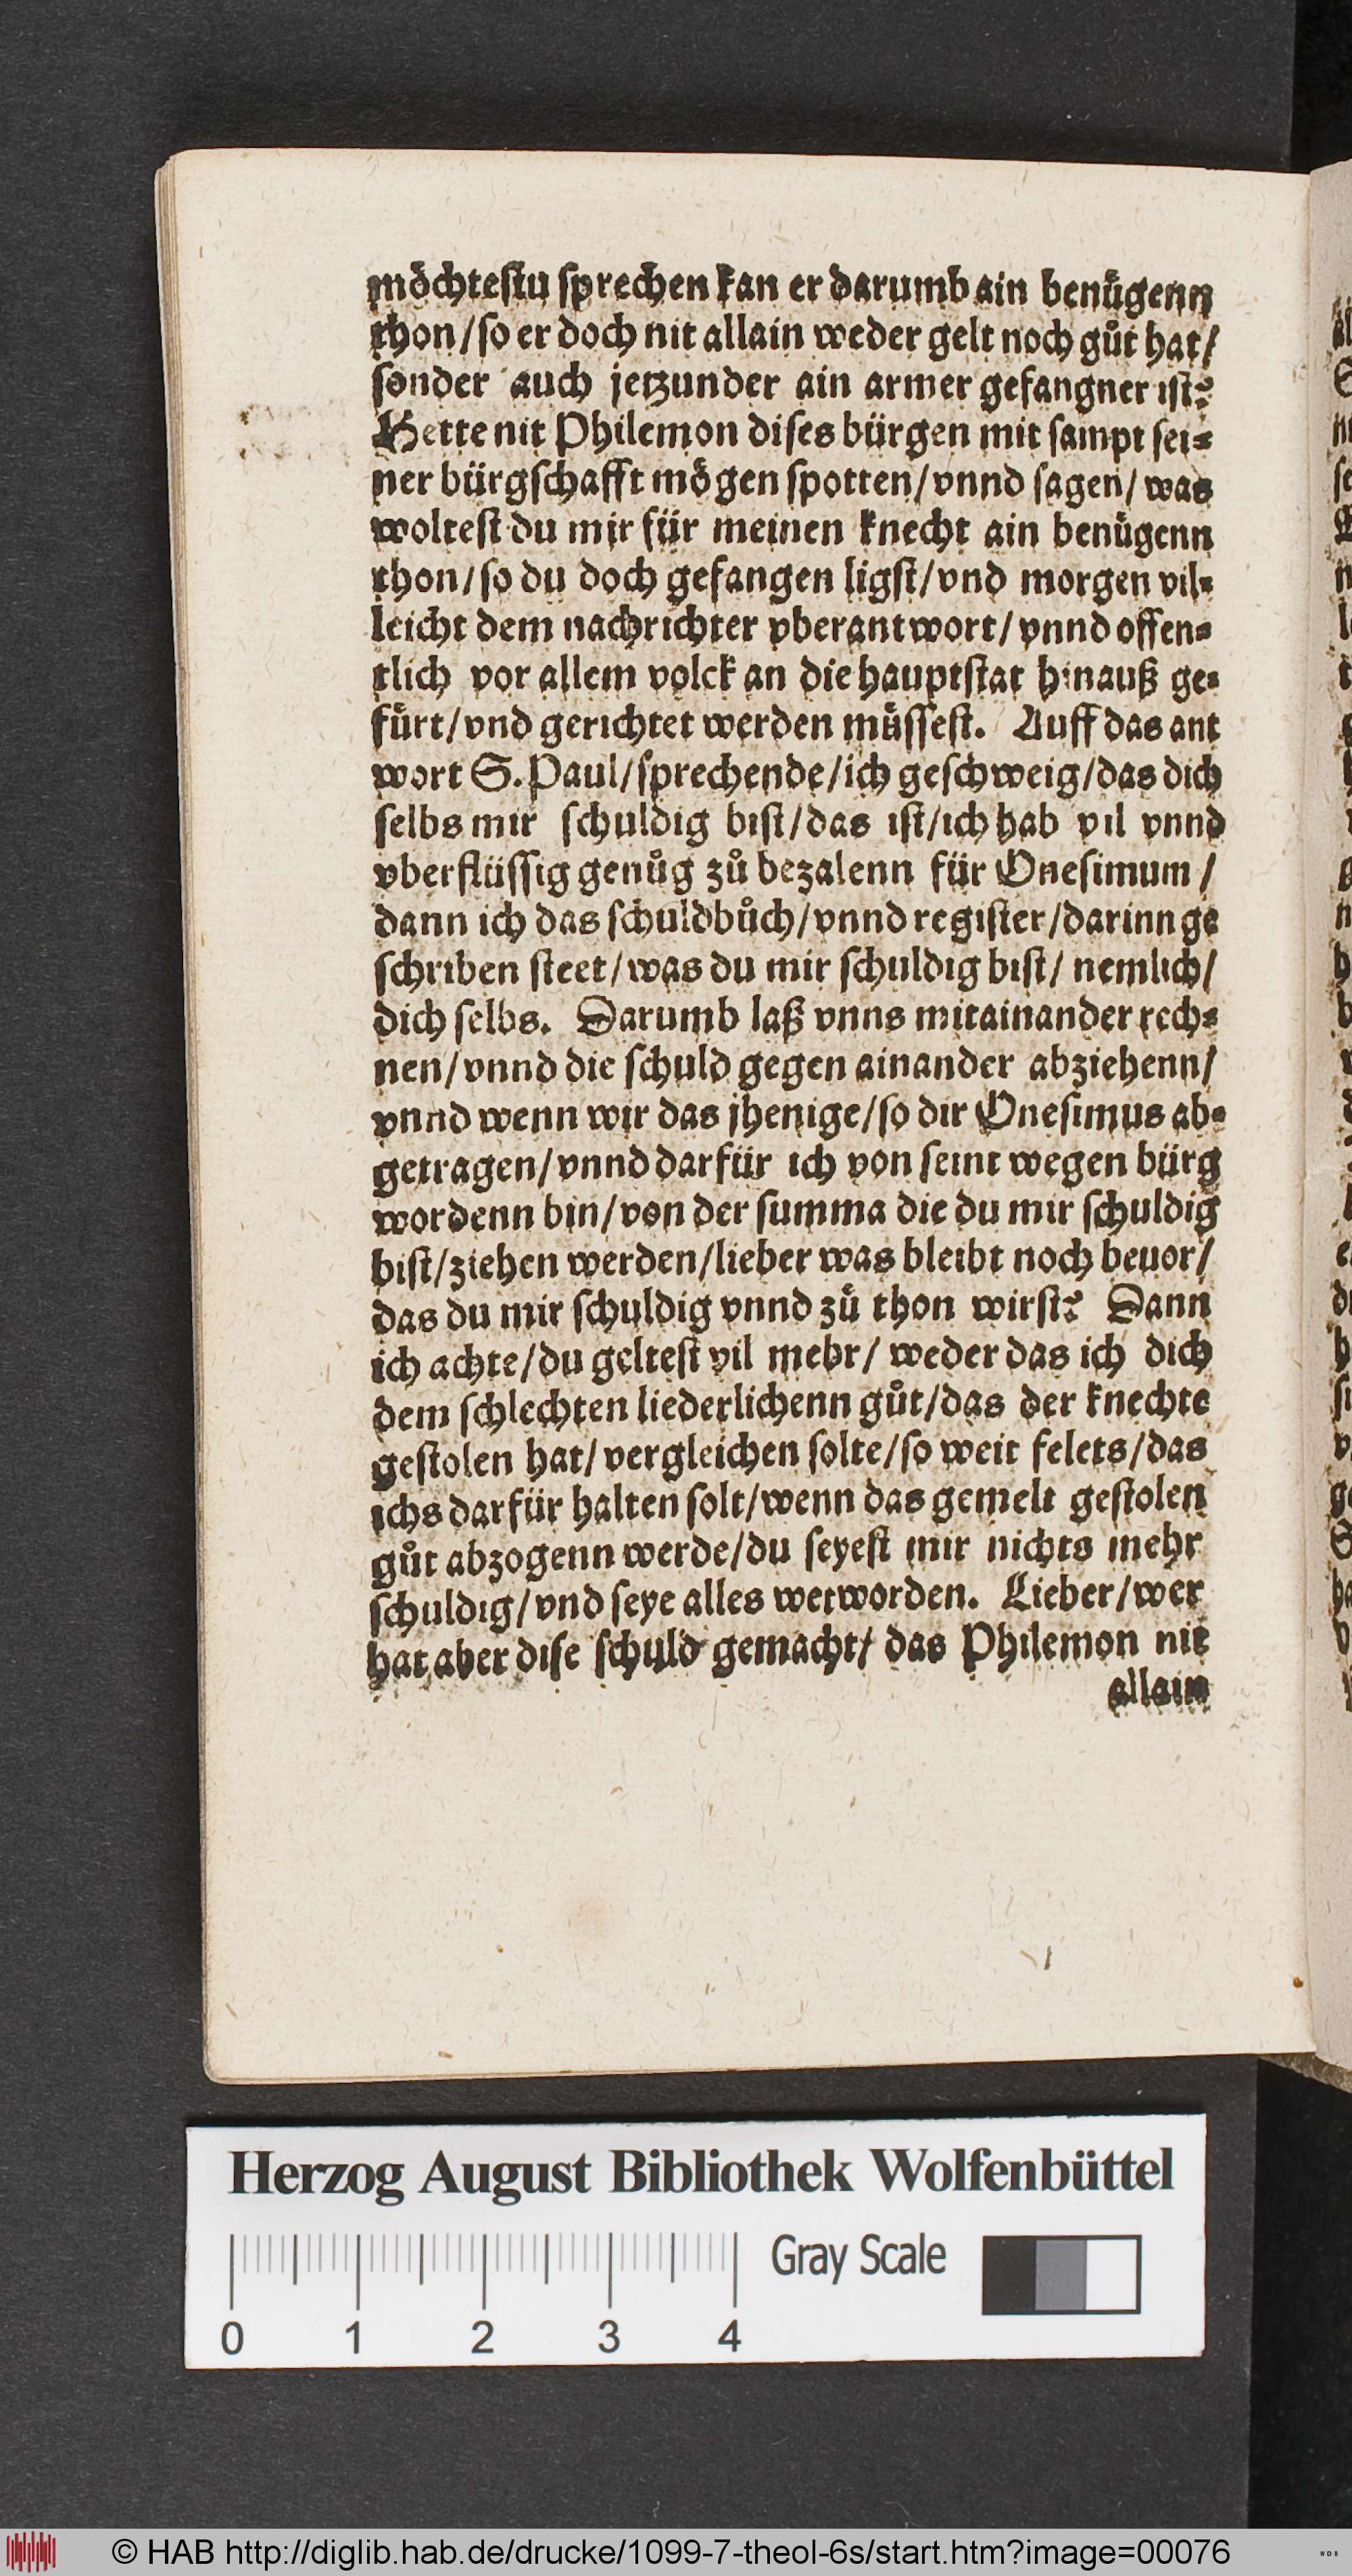 möchtestu sprechen kan er darumb ain benuͤgenn
thon/so er doch nit allain weder gelt noch guͦt hat/
sonder auch jetzunder ain armer gefangner ist?
Hette nit Philemon dises bürgen mit sampt sei⸗
ner bürgschafft moͤgen spotten/vnnd sagen/was
woltest du mir für meinen knecht ain benuͤgenn
thon/so du doch gefangen ligst/vnd morgen vil⸗
leicht dem nachrichter vberantwort/vnnd offen⸗
tlich vor allem volck an die hauptstat hinauß ge⸗
fuͤrt/vnd gerichtet werden muͤssest. Auff das ant
wort S.Paul/sprechende/ich geschweig/das dich
selbs mir schuldig bist/das ist/ich hab vil vnnd
vberflüssig genuͦg zuͦ bezalenn für Onesimum/
dann ich das schuldbuͦch/vnnd register/darinn ge
schriben steet/was du mir schuldig bist/nemlich/
dich selbs. Darumb laß vnns mitainander rech⸗
nen/vnnd die schuld gegen ainander abziehenn/
vnnd wenn wir das jhenige/so dir Onesimus ab⸗
getragen/vnnd darfür ich von seint wegen bürg
wordenn bin/von der summa die du mir schuldig
bist/ziehen werden/lieber was bleibt noch beuor/
das du mir schuldig vnnd zuͦ thon wirst? Dann
ich achte/du geltest vil mehr/weder das ich dich
dem schlechten liederlichenn guͦt/das der knechte
gestolen hat/vergleichen solte/so weit felets/das
ichs darfür halten solt/wenn das gemelt gestolen
guͦt abzogenn werde/du seyest mir nichts mehr
schuldig/vnd seye alles wetworden. Lieber/wer
hat aber dise schuld gemacht/das Philemon nit
allain
Herzog August Bibliothek Wolfenbüttel
Gray Scale
0 1 2 3 4
© HAB http://diglib.hab.de/drucke/1099-7-theol-6s/start.htm?image=00076